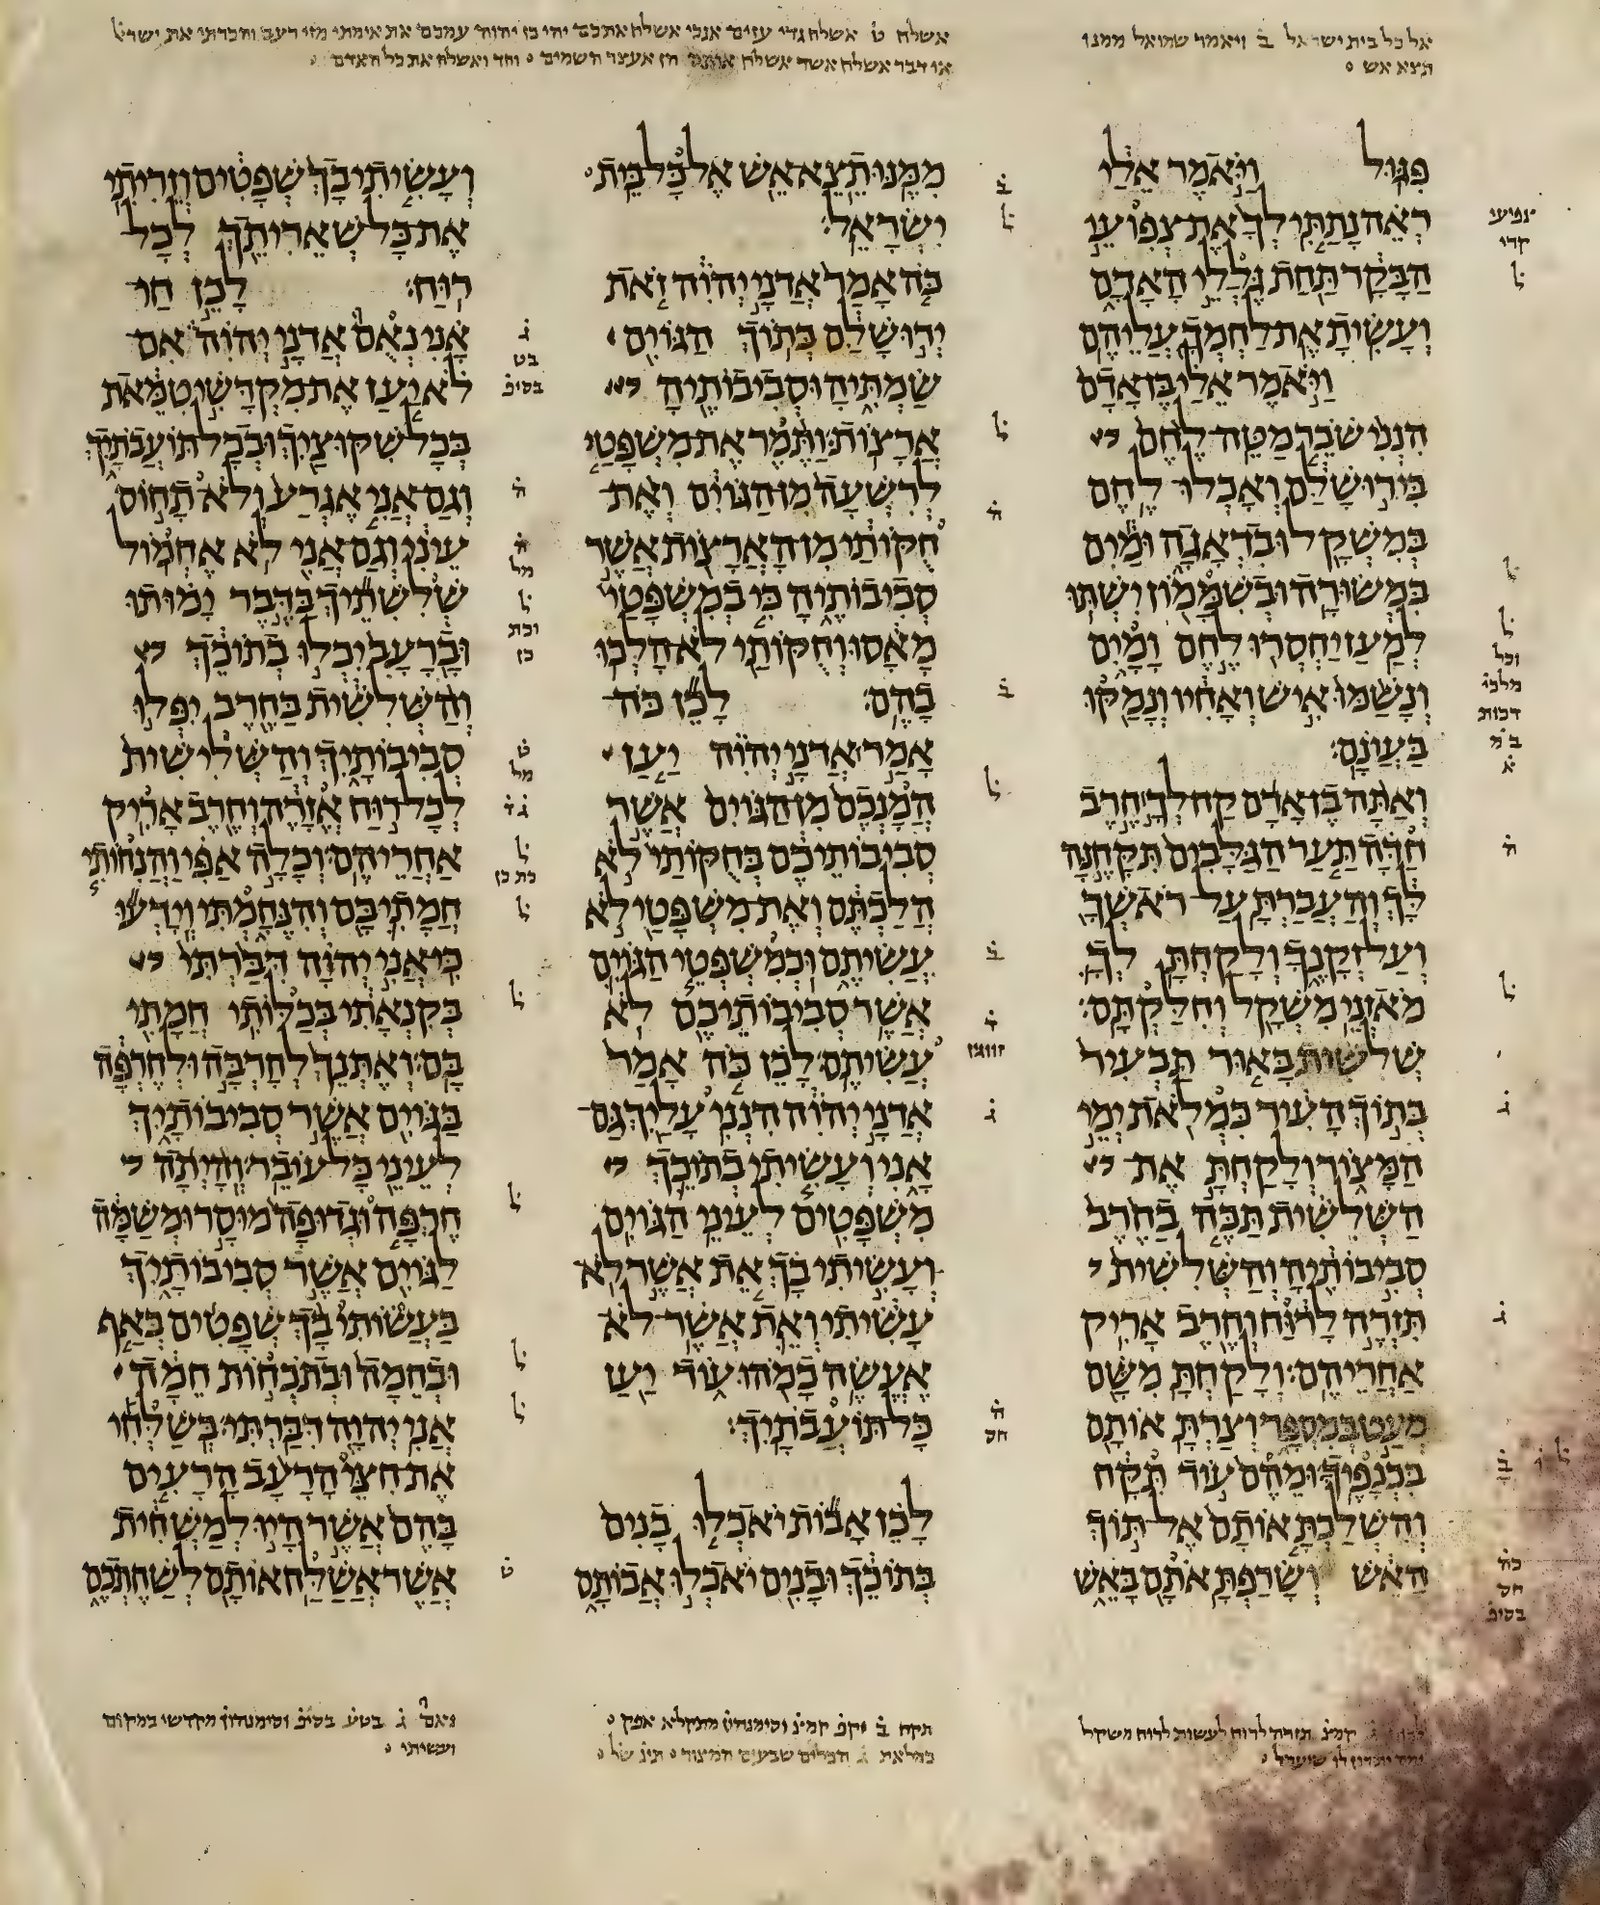 אל כל בית ישראל ב ויאמר שמואל ממנו
תצא אש
אשלח ט אשלח גדי עזים אנכי אשלח אתכם יהי כן יהוה עמכם את אימתי מזי רעב והכרתי את
או דבר אשלח אשר אשלח אותם הן אעצר השמים וחד ואשלח את כל האדם
פִגּוּל וַיֹּאמֶר אֵלַי
רְאֵה נָתַתִּי לְךָ אֶת צְפוּעֵי
הַבָּקָר תַּחַת גֶּלְלֵי הָאָדָם
וְעָשִׂיתָ אֶת לַחְמְךָ עֲלֵיהֶם
וַיֹּאמֶר אֵלַי בֶּן אָדָם
הִנְנִי שֹׁבֵר מַטֵּה לֶחֶם
בִּירוּשָׁלִַם וְאָכְלוּ לֶחֶם
בְּמִשְׁקָל וּבִדְאָגָה וּמַיִם
בִּמְשׂוּרָה וּבְשִׁמָּמוֹן יִשְׁתּוּ
לְמַעַן יַחְסְרוּ לֶחֶם וָמָיִם
וְנָשַׁמּוּ אִישׁ וְאָחִיו וְנָמַקּוּ
בַּעֲוֹנָם׃
וְאַתָּה בֶן אָדָם קַח לְךָ חֶרֶב
חַדָּה תַּעַר הַגַּלָּבִים תִּקָּחֶנָּה
לָּךְ וְהַעֲבַרְתָּ עַל רֹאשְׁךָ
וְעַל זְקָנֶךָ וְלָקַחְתָּ לְךָ
מֹאזְנֵי מִשְׁקָל וְחִלַּקְתָּם׃
שְׁלִשִׁית בָּאוּר תַּבְעִיר
בְּתוֹךְ הָעִיר כִּמְלֹאת יְמֵי
הַמָּצוֹר וְלָקַחְתָּ אֶת
הַשְּׁלִשִׁית תַּכֶּה בַחֶרֶב
סְבִיבוֹתֶיהָ וְהַשְּׁלִשִׁית
תִּזְרֶה לָרוּחַ וְחֶרֶב אָרִיק
אַחֲרֵיהֶם׃ וְלָקַחְתָּ מִשָּׁם
מְעַט בְּמִסְפָּר וְצַרְתָּ אוֹתָם
בִּכְנָפֶיךָ׃ וּמֵהֶם עוֹד תִּקָּח
וְהִשְׁלַכְתָּ אוֹתָם אֶל תּוֹךְ
הָאֵשׁ וְשָׂרַפְתָּ אֹתָם בָּאֵשׁ
מִמֶּנּוּ תֵצֵא אֵשׁ אֶל כָּל בֵּית
יִשְׂרָאֵל׃
כֹּה אָמַר אֲדֹנָי יְהוִה זֹאת
יְרוּשָׁלִַם בְּתוֹךְ הַגּוֹיִם
שַׂמְתִּיהָ וּסְבִיבוֹתֶיהָ
אֲרָצוֹת׃ וַתֶּמֶר אֶת מִשְׁפָּטַי
לְרִשְׁעָה מִן הַגּוֹיִם וְאֶת
חֻקּוֹתַי מִן הָאֲרָצוֹת אֲשֶׁר
סְבִיבוֹתֶיהָ כִּי בְמִשְׁפָּטַי
מָאָסוּ וְחֻקּוֹתַי לֹא הָלְכוּ
בָהֶם׃ לָכֵן כֹּה
אָמַר אֲדֹנָי יְהוִה יַעַן
הֲמָנְכֶם מִן הַגּוֹיִם אֲשֶׁר
סְבִיבוֹתֵיכֶם בְּחֻקּוֹתַי לֹא
הֲלַכְתֶּם וְאֶת מִשְׁפָּטַי לֹא
עֲשִׂיתֶם וּכְמִשְׁפְּטֵי הַגּוֹיִם
אֲשֶׁר סְבִיבוֹתֵיכֶם לֹא
עֲשִׂיתֶם׃ לָכֵן כֹּה אָמַר
אֲדֹנָי יְהוִה הִנְנִי עָלַיִךְ גַּם
אָנִי וְעָשִׂיתִי בְתוֹכֵךְ
מִשְׁפָּטִים לְעֵינֵי הַגּוֹיִם
וְעָשִׂיתִי בָךְ אֵת אֲשֶׁר לֹא
עָשִׂיתִי וְאֵת אֲשֶׁר לֹא
אֶעֱשֶׂה כָמֹהוּ עוֹד יַעַן
כָּל תּוֹעֲבֹתָיִךְ׃
לָכֵן אָבוֹת יֹאכְלוּ בָנִים
בְּתוֹכֵךְ וּבָנִים יֹאכְלוּ אֲבוֹתָם
וְעָשִׂיתִי בָךְ שְׁפָטִים וְזֵרִיתִי
אֶת כָּל שְׁאֵרִיתֵךְ לְכָל
רוּחַ׃ לָכֵן חַי
אָנִי נְאֻם אֲדֹנָי יְהוִה אִם
לֹא יַעַן אֶת מִקְדָּשִׁי טִמֵּאת
בְּכָל שִׁקּוּצַיִךְ וּבְכָל תּוֹעֲבֹתָיִךְ
וְגַם אֲנִי אֶגְרַע וְלֹא תָחוֹס
עֵינִי וְגַם אֲנִי לֹא אֶחְמוֹל
שְׁלִשִׁתֵיךְ בַּדֶּבֶר יָמוּתוּ
וּבָרָעָב יִכְלוּ בְתוֹכֵךְ
וְהַשְּׁלִשִׁית בַּחֶרֶב יִפְּלוּ
סְבִיבוֹתָיִךְ וְהַשְּׁלִישִׁית
לְכָל רוּחַ אֱזָרֶה וְחֶרֶב אָרִיק
אַחֲרֵיהֶם׃ וְכָלָה אַפִּי וַהֲנִחוֹתִי
חֲמָתִי בָּם וְהִנֶּחָמְתִּי וְיָדְעוּ
כִּי אֲנִי יְהוָה דִּבַּרְתִּי
בְּקִנְאָתִי בְּכַלּוֹתִי חֲמָתִי
בָּם׃ וְאֶתְּנֵךְ לְחָרְבָּה וּלְחֶרְפָּה
בַּגּוֹיִם אֲשֶׁר סְבִיבוֹתָיִךְ
לְעֵינֵי כָּל עוֹבֵר׃ וְהָיְתָה
חֶרְפָּה וּגְדוּפָה מוּסָר וּמְשַׁמָּה
לַגּוֹיִם אֲשֶׁר סְבִיבוֹתָיִךְ
בַּעֲשׂוֹתִי בָךְ שְׁפָטִים בְּאַף
וּבְחֵמָה וּבְתֹכְחוֹת חֵמָה
אֲנִי יְהוָה דִּבַּרְתִּי׃ בְּשַׁלְּחִי
אֶת חִצֵּי הָרָעָב הָרָעִים
בָּהֶם אֲשֶׁר הָיוּ לְמַשְׁחִית
אֲשֶׁר אֲשַׁלַּח אוֹתָם לְשַׁחֶתְכֶם
קמצ תזרה לרוח לעשות לרוח משקל
תקח ב וקמצ וסימנהון מתקלא אפק
במלאת ג הכלים שבעים המצור
נאם ג בטע בסיפ וסימנהון מקדשי במקום
ועשיתי